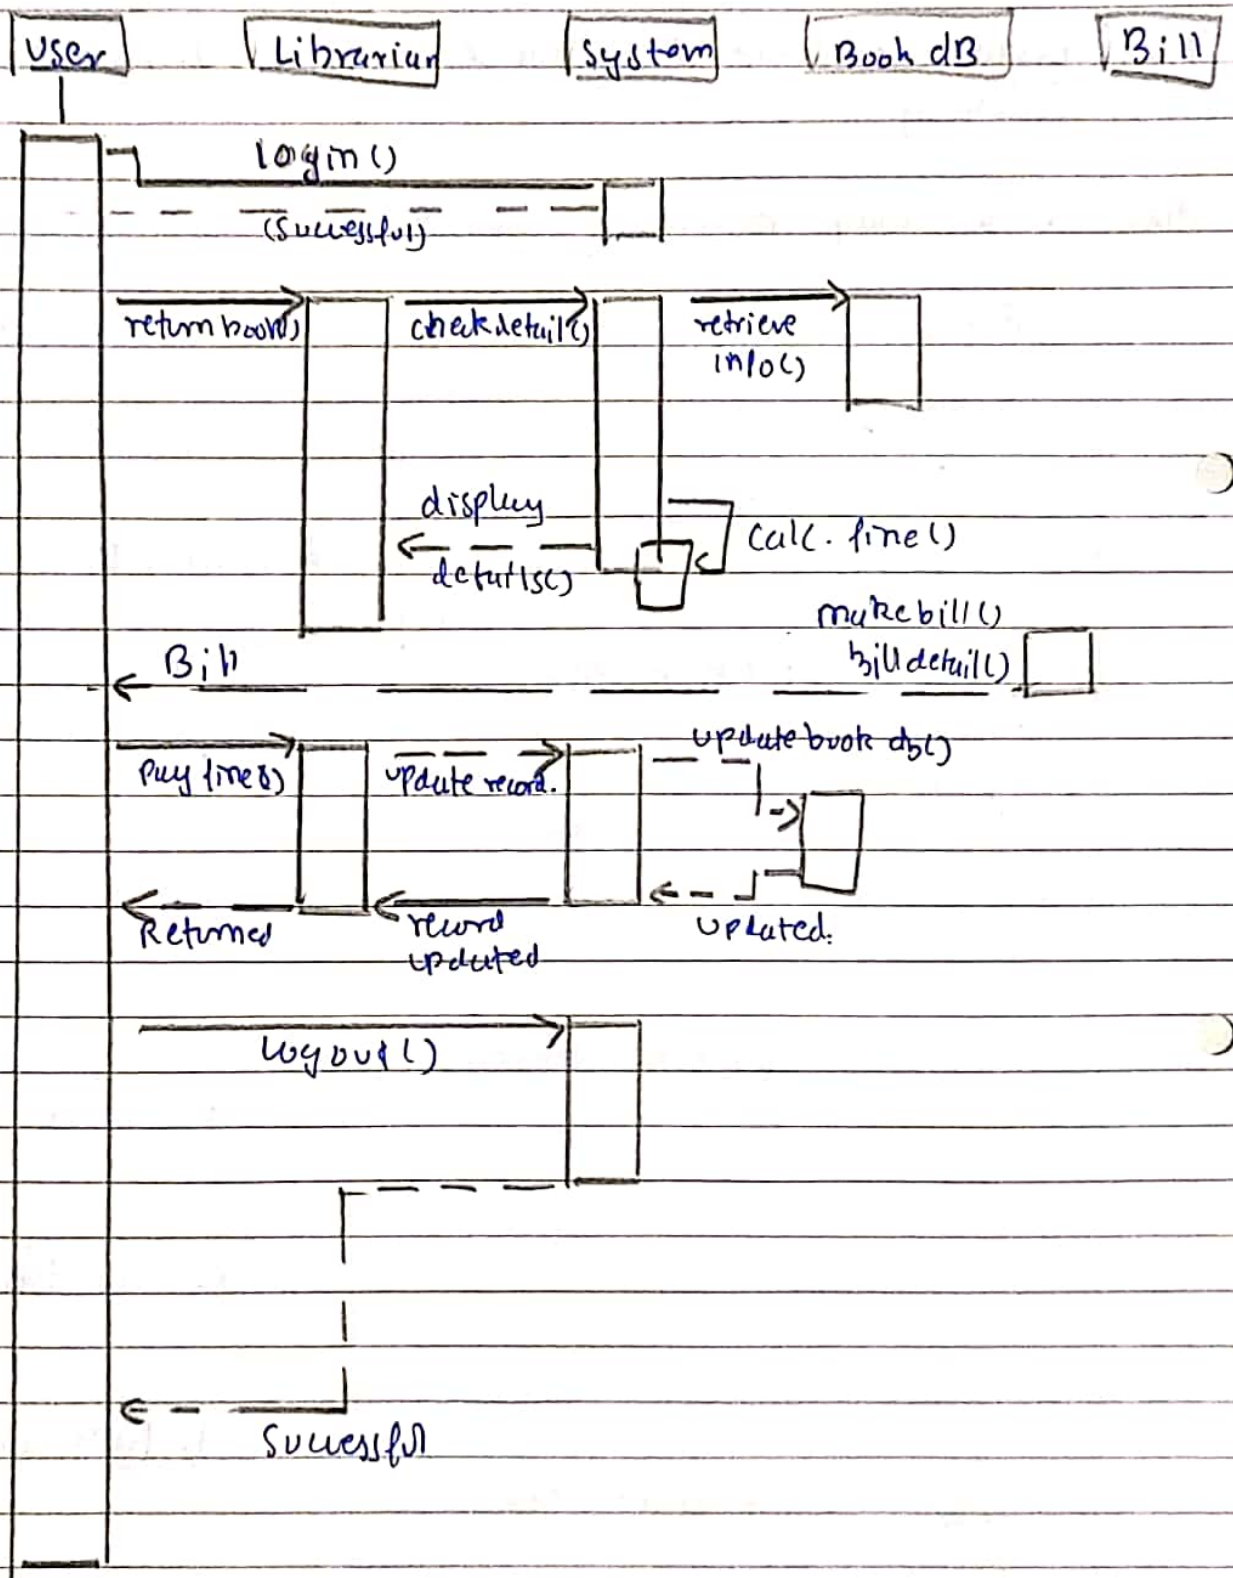 User Librarian System Book dB Bill
login()
(Successful)
return book() check detail() retrieve
info()
display
details()
calc. fine()
make bill()
bill detail()
Bill
update book db()
pay fine() update record.
Returned record updated.
updated
logout()
Successful